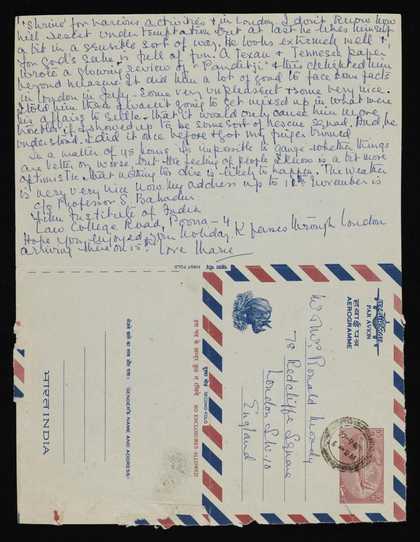 for various activities & in London I don't know how
he'll react under temptation but at last he likes himself
a bit in a sensible sort of way. He looks extremely well &
for God's sake is full of fun. A Texan & Tennessee paper
wrote a glowing review of "Panditji" & this delighted him
beyond measure. It did him a lot of good to face some facts
in London in July. Some very unpleasant & some very nice.
I told him that I wasn't going to get mixed up in what were
his affairs to settle - that it would only cause him more
if I showed up to be some sort of rescue squad. And he
understood. Had it once before & got my fingers burned
In a matter of 48 hours it's impossible to gauge whether things
are better or worse but the feeling of people I know is a bit more
optimistic - that nothing too dire is likely to happen. The weather
is very very nice now. My address up to 10th November is
c/o Professor S. Bahadur
Film Institute of India
Law College Road, Poona-4
Hope you enjoyed your holiday. K passes through London
arriving there on 15th. Love Marie
FIRST FOLD
पहला मोड़
भारत INDIA
SENDER'S NAME AND ADDRESS:-
NO ENCLOSURES ALLOWED
SECOND FOLD
दूसरा मोड़
हवाई पत्र
AEROGRAMME
PAR AVION
Mr & Mrs Ronald Moody
70 Redcliffe Square
London S.W.10
England